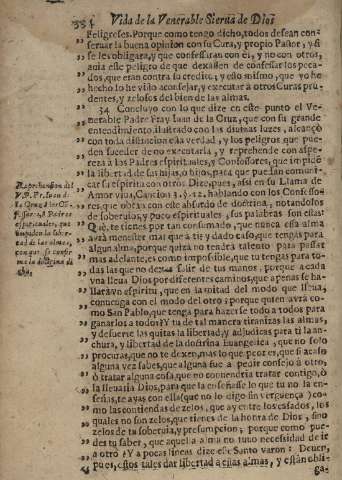 384 Vida de la Venerable Sierva de Dios
Feligreses. Porque como tengo dicho, todos desean con-
servar la buena opinion con su Cura, y propio Pastor, y si
se les obligara, y que confessaran con el, y no con otros,
avia este peligro de que dexassen de confessar los peca-
dos, que eran contra su credito; y esto mismo, que yo he
hecho lo he visto aconsejar, y executar à otros Curas pru-
dentes, y zelosos del bien de las almas.
34 Concluyo con lo que dize en este punto el Ve-
nerable Padre Fray Juan de la Cruz, que con su grande
entendimiento ilustrado con las divinas luzes, alcançò
con toda distincion esta verdad, y los peligros que pue-
den suceder de no executarla, y reprehende con aspe-
reza à los Padres espirituales, y Confessores, que impidē
la libertad de sus hijas, ò hijos, para que puedan comuni-
car su espiritu con otro. Dize pues, assi en su Llama de
Amor viva, Cancion 3. §. 12. hablando con los Confesso-
res, que obran con este absurdo de doctrina, notandolos
de sobervios, y poco espirituales, sus palabras son estas:
Què, te tienes por tan consumado, que nunca essa alma
avrà menester mas que à ti? y dado caso, que tengas para
alguna alma, porque quizà no tendrà talento para passar
mas adelante, es como impossible, que tu tengas para to-
das las que no dexas salir de tus manos, porque à cada
vna lleva Dios por diferentes caminos, que apenas se ha-
llarà vn espiritu, que en la mitad del modo que lleva,
convenga con el modo del otro; porque quien avrà co-
mo San Pablo, que tenga para hazerse todo à todos para
ganarlos à todos? Y tu de tal manera tiranizas las almas,
y de suerte las quitas la libertad y adjudicas para ti la an-
chura, y libertad de la doctrina Evangelica, que no solo
procuras, que no te dexen, mas lo que peor es, que si acaso
alguna vez sabes, que alguna fue à pedir consejo à otro,
ò tratar alguna cosa, que no convendria tratar contigo, ò
la llevaria Dios, para que la enseñasse lo que tu no la en-
señas, te ayas con ella (que no lo digo sin verguença) co-
mo las contiendas de zelos, que ay entre los casados, los
quales no son zelos, que tienes de la honra de Dios, sino
zelos de tu sobervia, y presumpcion, porque como pue-
des tu saber, que aquella alma no tuvo necessidad de ir
à otro? Y à pocas lineas dize este Santo varon: Deven,
pues, estos tales dar libertad à estas almas, y están obli-
ga-
Reprehension del
V. P. Fr. Juan d
la Cruz à los Cō-
fessores, à Padres
espirituales, que
impiden la liber-
tad de las almas,